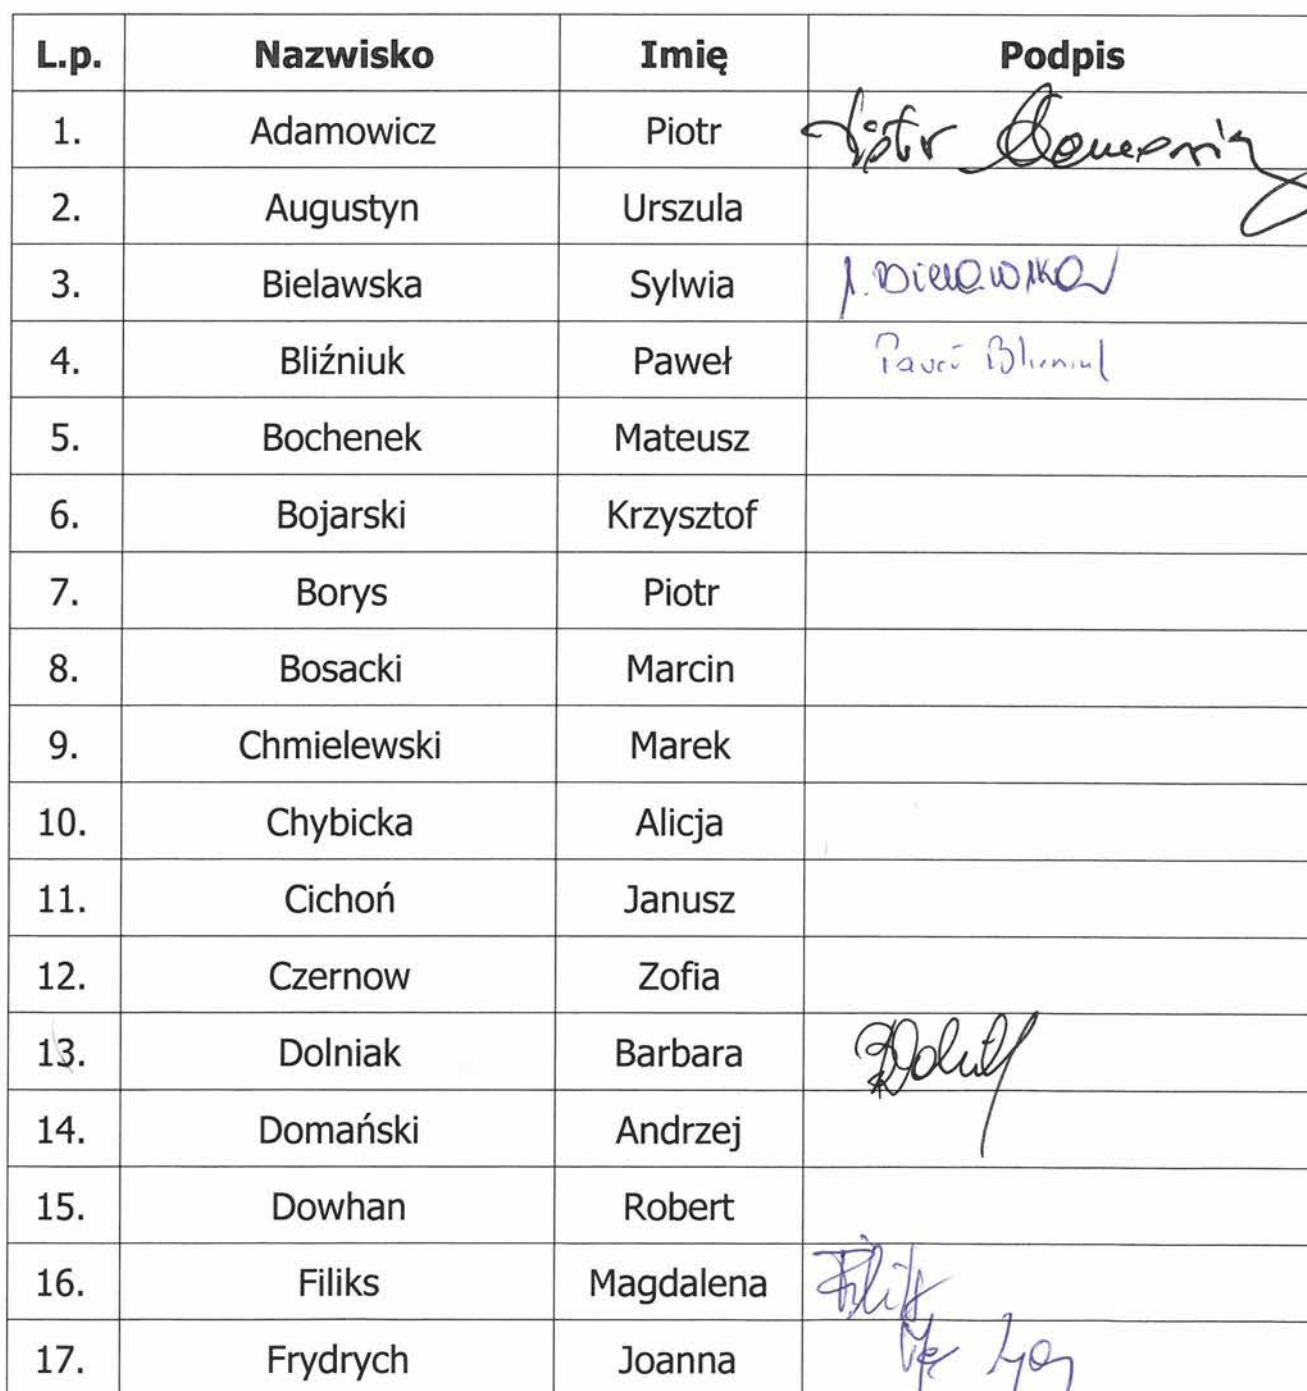 L.p. Nazwisko Imię Podpis
1. Adamowicz Piotr Piotr
2. Augustyn Urszula
3. Bielawska Sylwia S. Bielawska
4. Bliźniuk Paweł Paweł Bliźniuk
5. Bochenek Mateusz
6. Bojarski Krzysztof
7. Borys Piotr
8. Bosacki Marcin
9. Chmielewski Marek
10. Chybicka Alicja
11. Cichoń Janusz
12. Czernow Zofia
13. Dolniak Barbara
14. Domański Andrzej
15. Dowhan Robert
16. Filiks Magdalena
17. Frydrych Joanna